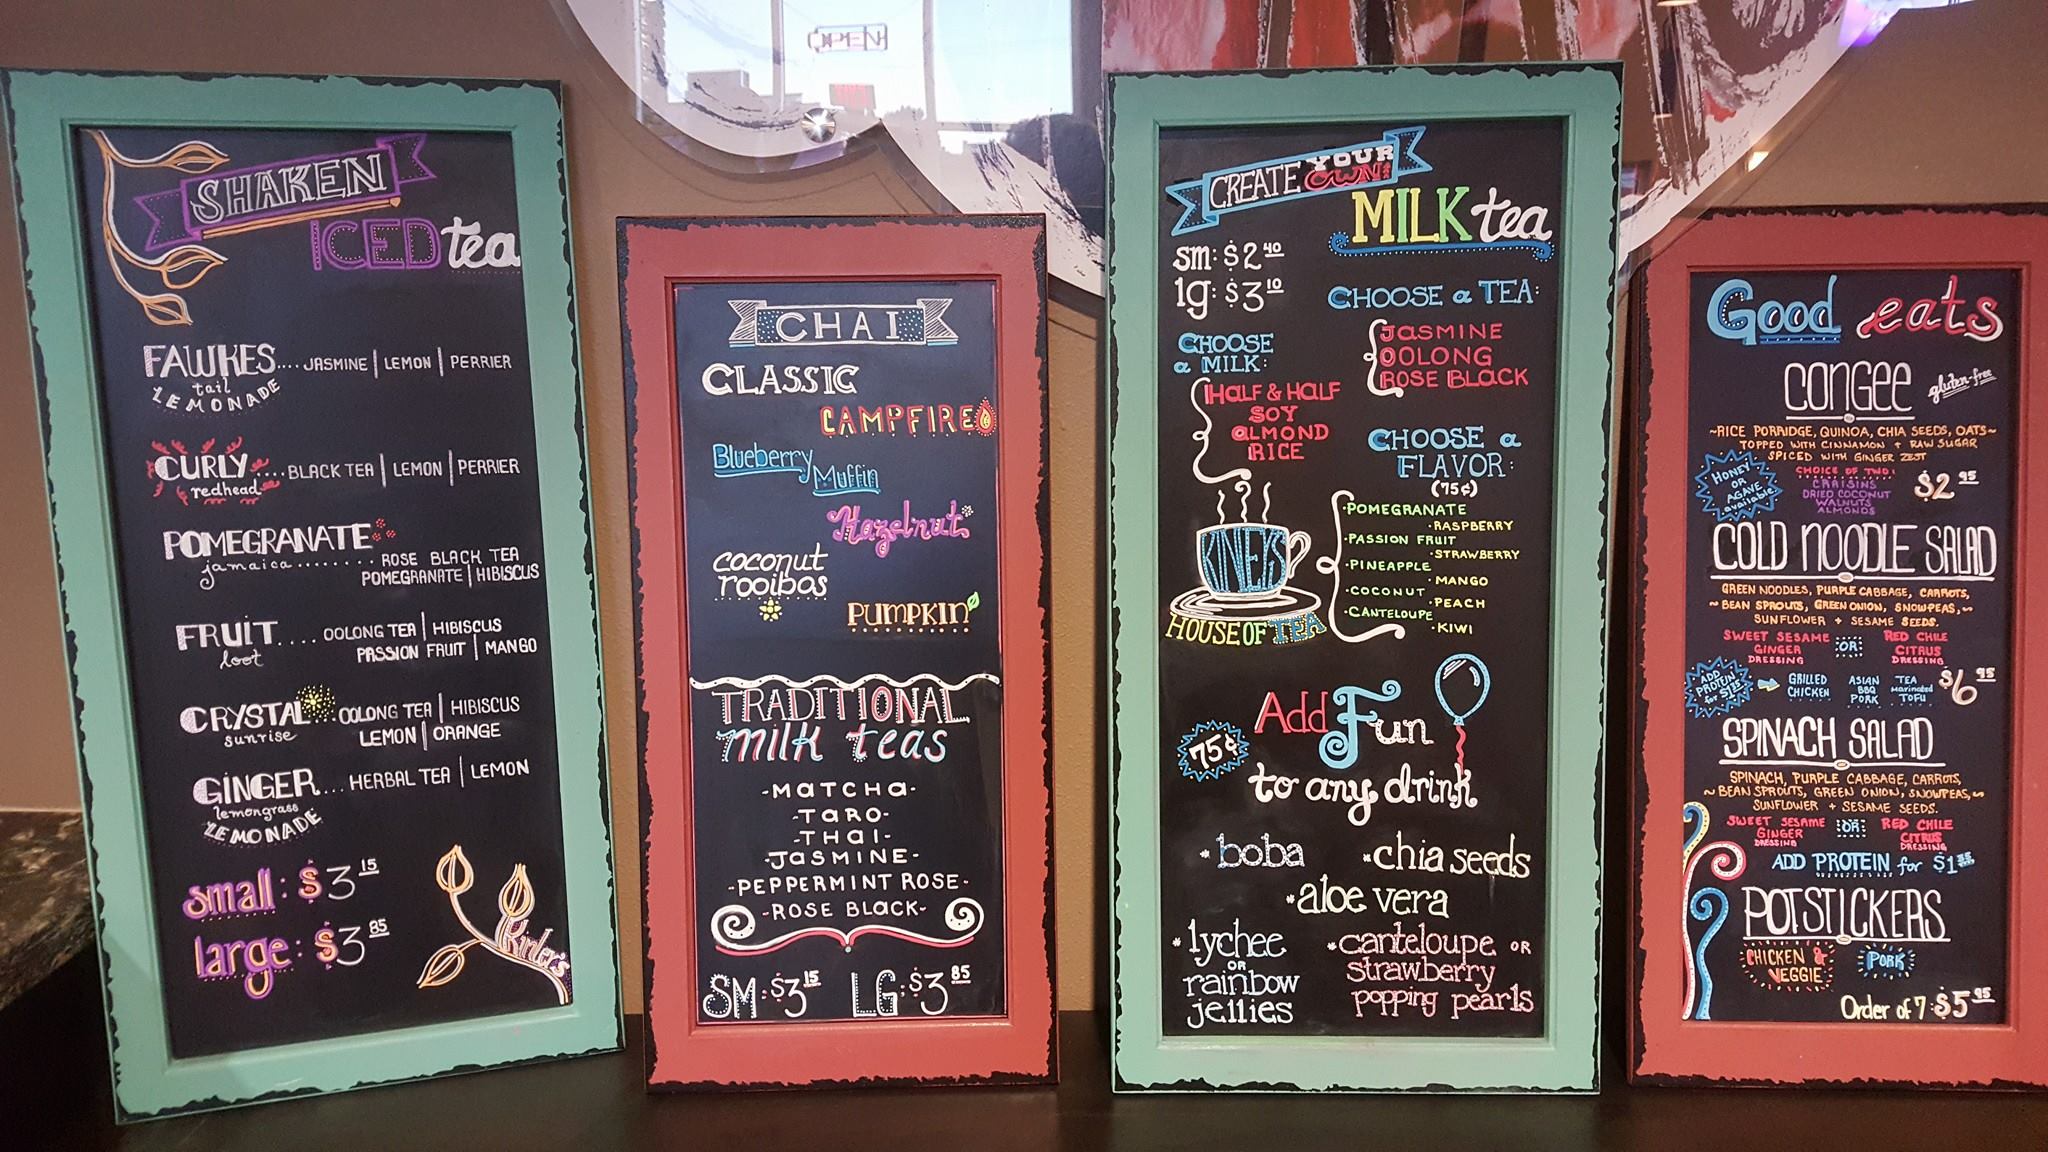 OPEN
SHAKEN
ICED tea
FAWKES.... JASMINE | LEMON | PERRIER
tail
LEMONADE
CURLY.... BLACK TEA | LEMON | PERRIER
redhead
POMEGRANATE
jamaica........ ROSE BLACK TEA
POMEGRANATE | HIBISCUS
FRUIT.... OOLONG TEA | HIBISCUS
loot PASSION FRUIT | MANGO
CRYSTAL. OOLONG TEA | HIBISCUS
sunrise LEMON | ORANGE
GINGER... HERBAL TEA | LEMON
lemongrass
LEMONADE
small: $3 15
large: $3 85
CHAI
CLASSIC
CAMPFIRE
Blueberry
Muffin
Hazelnut
coconut
rooibos
PUMPKIN
TRADITIONAL
milk teas
-MATCHA-
-TARO-
-THAI-
-JASMINE-
-PEPPERMINT ROSE-
-ROSE BLACK-
SM: $3 15 LG: $3 85
CREATE YOUR
OWN:
MILK tea
sm: $2 40
lg: $3 10
CHOOSE a TEA:
JASMINE
OOLONG
ROSE BLACK
CHOOSE
a MILK:
HALF & HALF
SOY
ALMOND
RICE
CHOOSE a
FLAVOR:
(75¢)
·POMEGRANATE
·RASPBERRY
·PASSION FRUIT
·STRAWBERRY
·PINEAPPLE
·MANGO
·COCONUT
·PEACH
·CANTELOUPE
·KIWI
KINLEY'S
HOUSE OF TEA
Add Fun
75¢
to any drink
*boba *chia seeds
*aloe vera
*lychee
OR
rainbow
jellies
*canteloupe OR
strawberry
popping pearls
Good eats
CONGEE gluten-free
~RICE PORRIDGE, QUINOA, CHIA SEEDS, OATS~
TOPPED WITH CINNAMON + RAW SUGAR
SPICED WITH GINGER ZEST
HONEY
OR
AGAVE
available
CHOICE OF TWO:
CRAISINS
DRIED COCONUT
WALNUTS
ALMONDS
$2 95
COLD NOODLE SALAD
GREEN NOODLES, PURPLE CABBAGE, CARROTS,
~BEAN SPROUTS, GREEN ONION, SNOWPEAS,~
SUNFLOWER + SESAME SEEDS.
SWEET SESAME
GINGER
DRESSING
OR
RED CHILE
CITRUS
DRESSING
ADD
PROTEIN
for
GRILLED
CHICKEN
ASIAN
BBQ
PORK
TEA
marinated
TOFU
$6 95
SPINACH SALAD
SPINACH, PURPLE CABBAGE, CARROTS,
~BEAN SPROUTS, GREEN ONION, SNOWPEAS,~
SUNFLOWER + SESAME SEEDS.
SWEET SESAME
GINGER
DRESSING
OR
RED CHILE
CITRUS
DRESSING
ADD PROTEIN for
POTSTICKERS
CHICKEN &
VEGGIE
PORK
Order of 7: $5 95